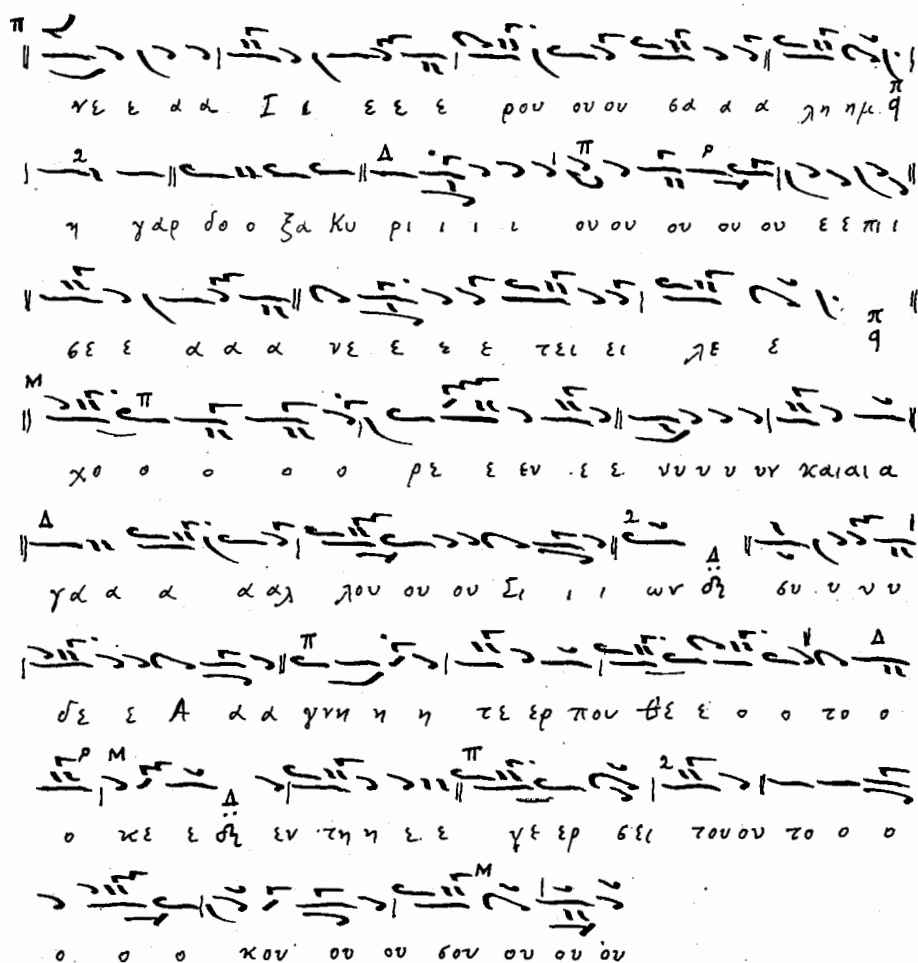 νε ε α α Ι ε ε ε ε ρου ου ου σα α α λη ημ
η γαρ δο ο ξα Κυ ρι ι ι ι ι ου ου ου ου ου ε ε πι ι
σε ε α α α νε ε ε ε τει ει λε ε
χο ο ο ο ο ρε ε εν ε ε νυ υ υ υν και αι α
γα α α α αλ λου ου ου Σι ι ι ων συ υ υ υ
δε ε Α α α γνη η η τε ερ που θε ε ο ο το ο
ο κε ε εν τη η ε ε γε ερ σει του ου το ο ο
ο ο ο κου ου ου σου ου ου ου